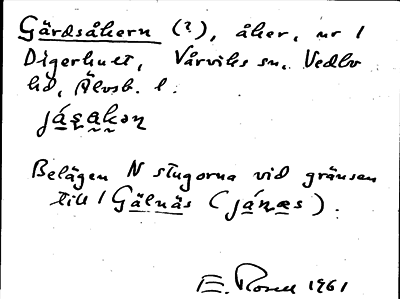 Gärdsåkern (?), åker, nr 1
Digerhuet, Vårviks sn. Vedbo
hd, Älvsb. l.
jásakən
Belägen N stugorna vid gränsen
till 1 Gälnäs (jánæs).
E. Rosell 1961